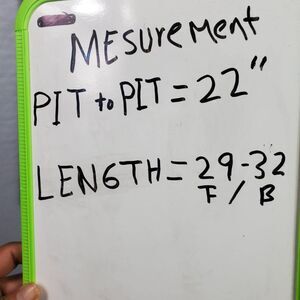 MESureMent
PIT to PIT = 22"
LENGTH = 29-32
F / B